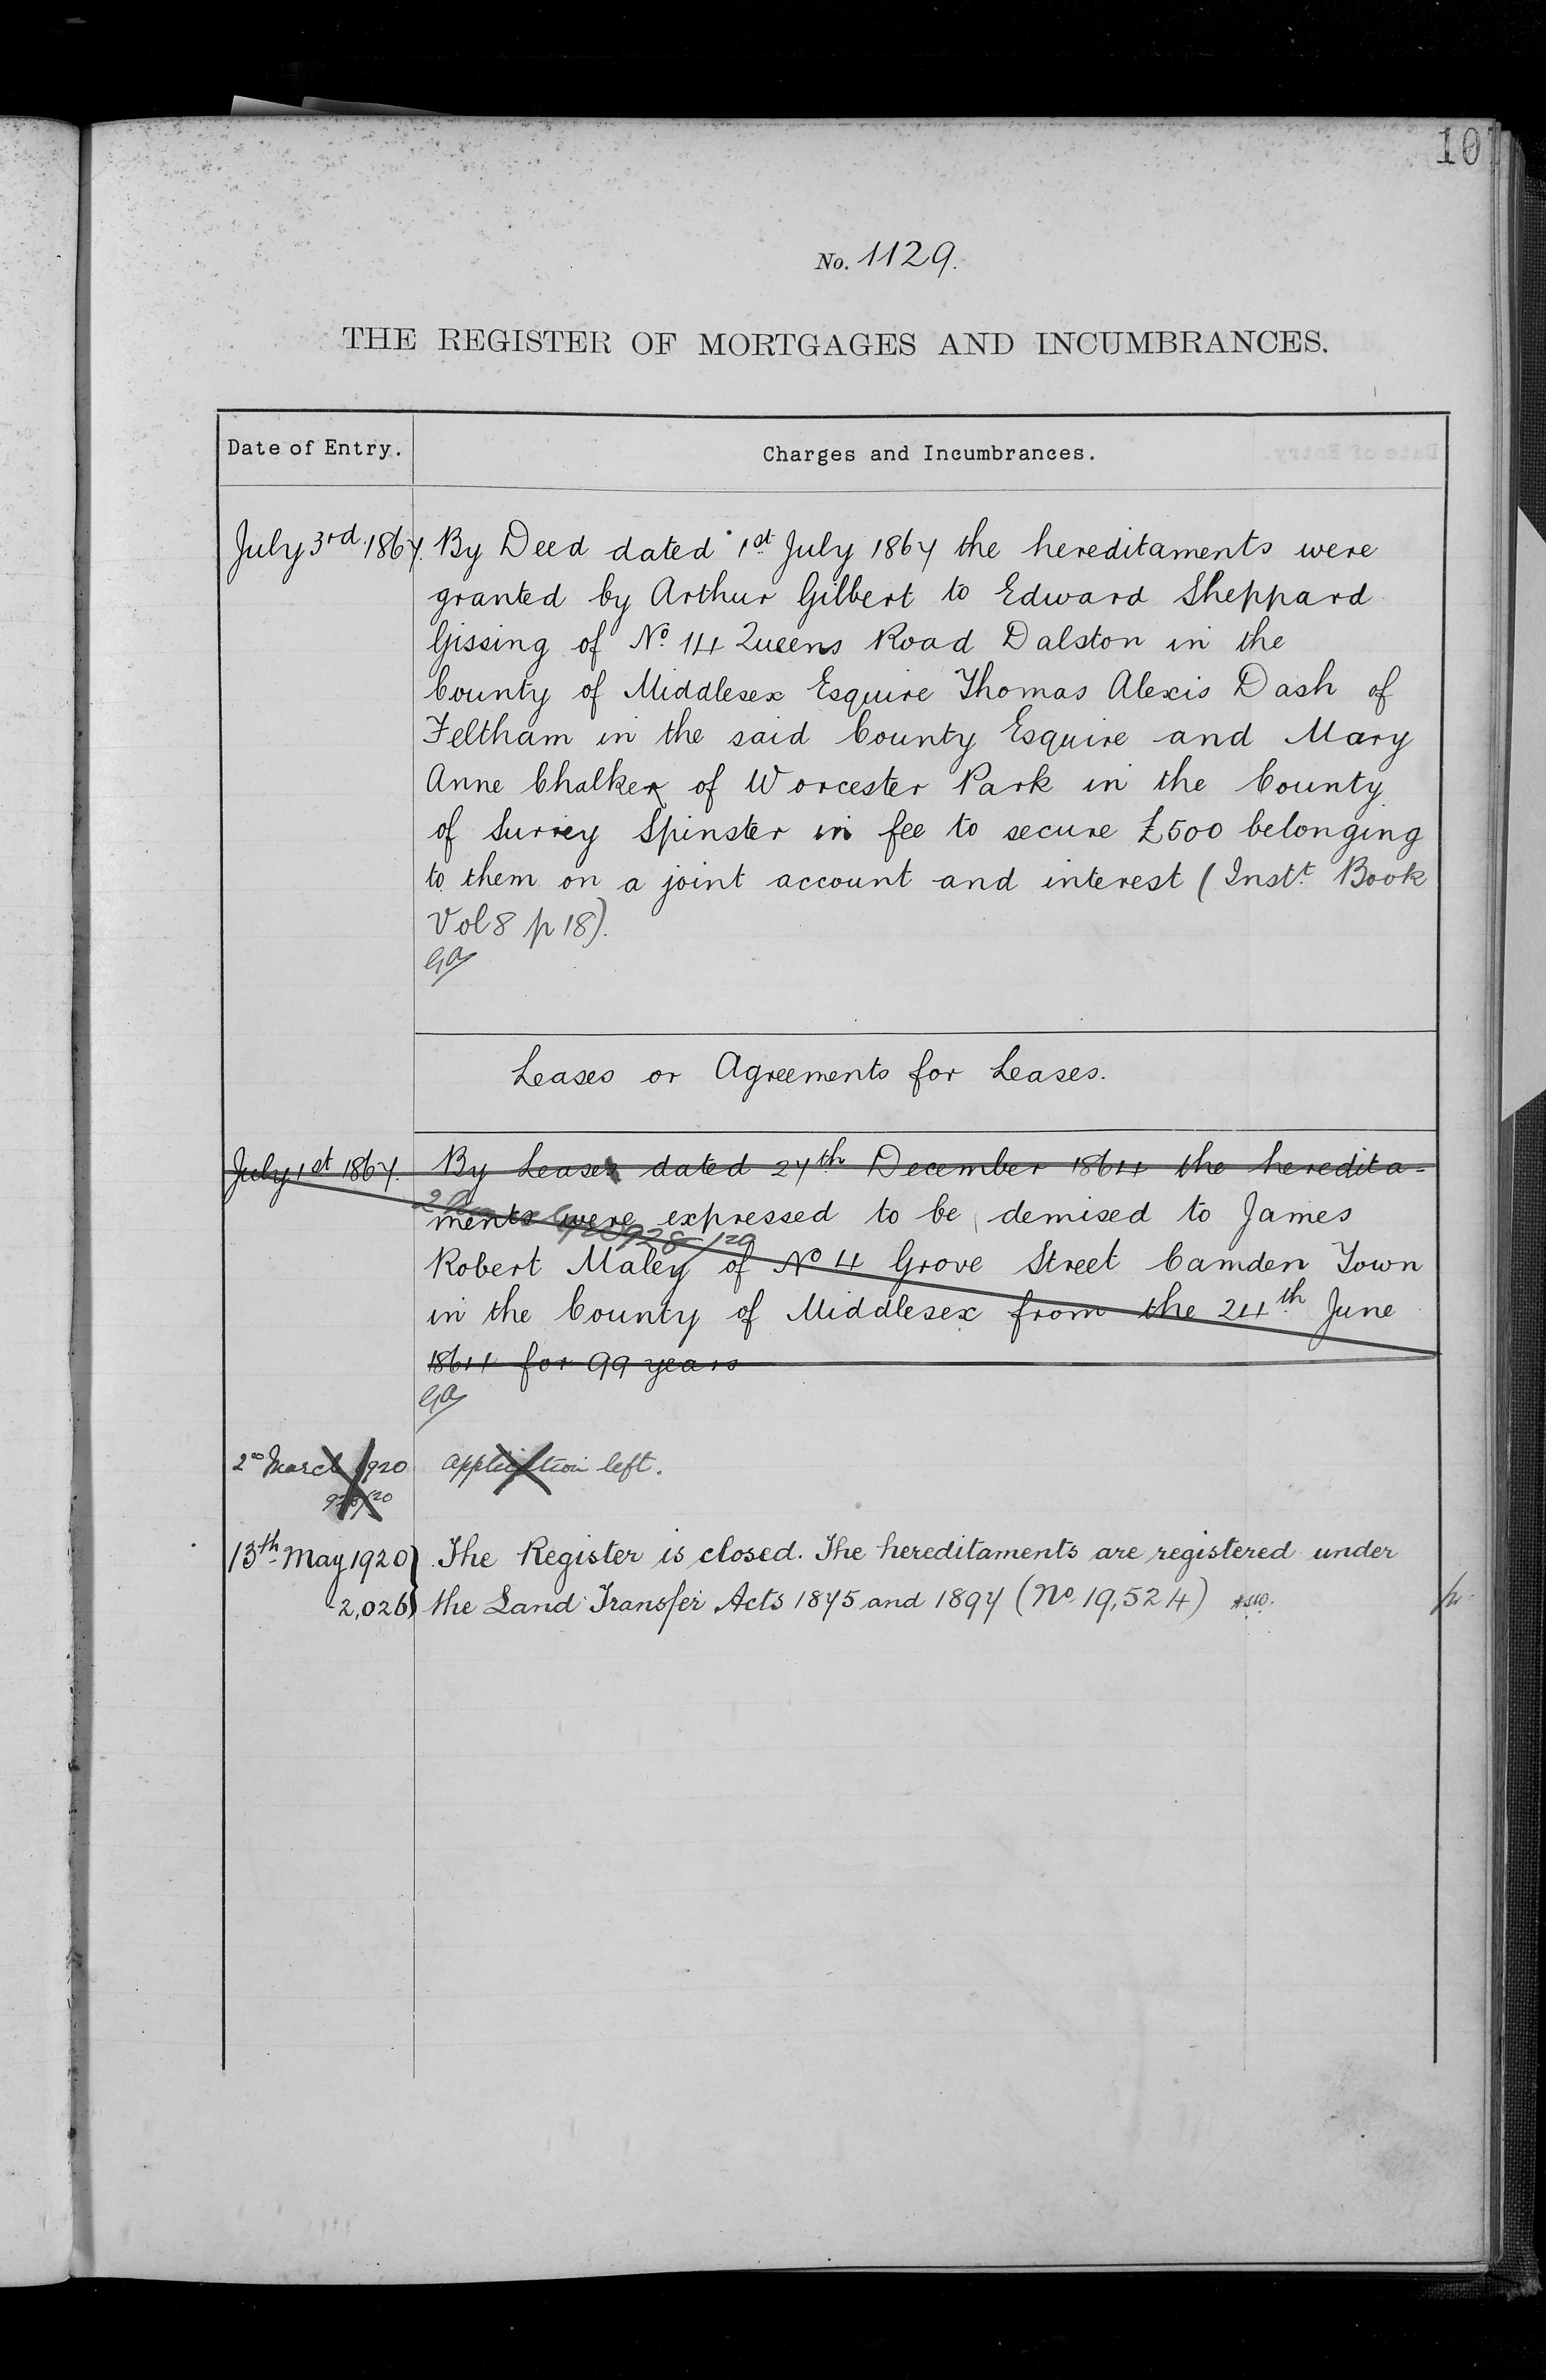 10
No. 1129.
THE REGISTER OF MORTGAGES AND INCUMBRANCES.
Date of Entry.
Charges and Incumbrances.
July 3rd 1867. By Deed dated 1st July 1867 the hereditaments were
granted by Arthur Gilbert to Edward Sheppard
Gissing of No. 14 Queens Road Dalston in the
County of Middlesex Esquire Thomas Alexis Dash of
Feltham in the said County Esquire and Mary
Anne Chalker of Worcester Park in the County
of Surrey Spinster in fee to secure £500 belonging
to them on a joint account and interest (Instt. Book
Vol 8 p 18).
GA
Leases or Agreements for Leases.
July 1st 1867. By Lease dated 27th December 1864 the heredita-
928/20
ments were expressed to be demised to James
Robert Maley of No 4 Grove Street Camden Town
in the County of Middlesex from the 24th June
1864 for 99 years
GA
2nd March 1920 Application left.
928/20
13th May 1920 The Register is closed. The hereditaments are registered under
2,026 the Land Transfer Acts 1875 and 1897 (No 19,524)